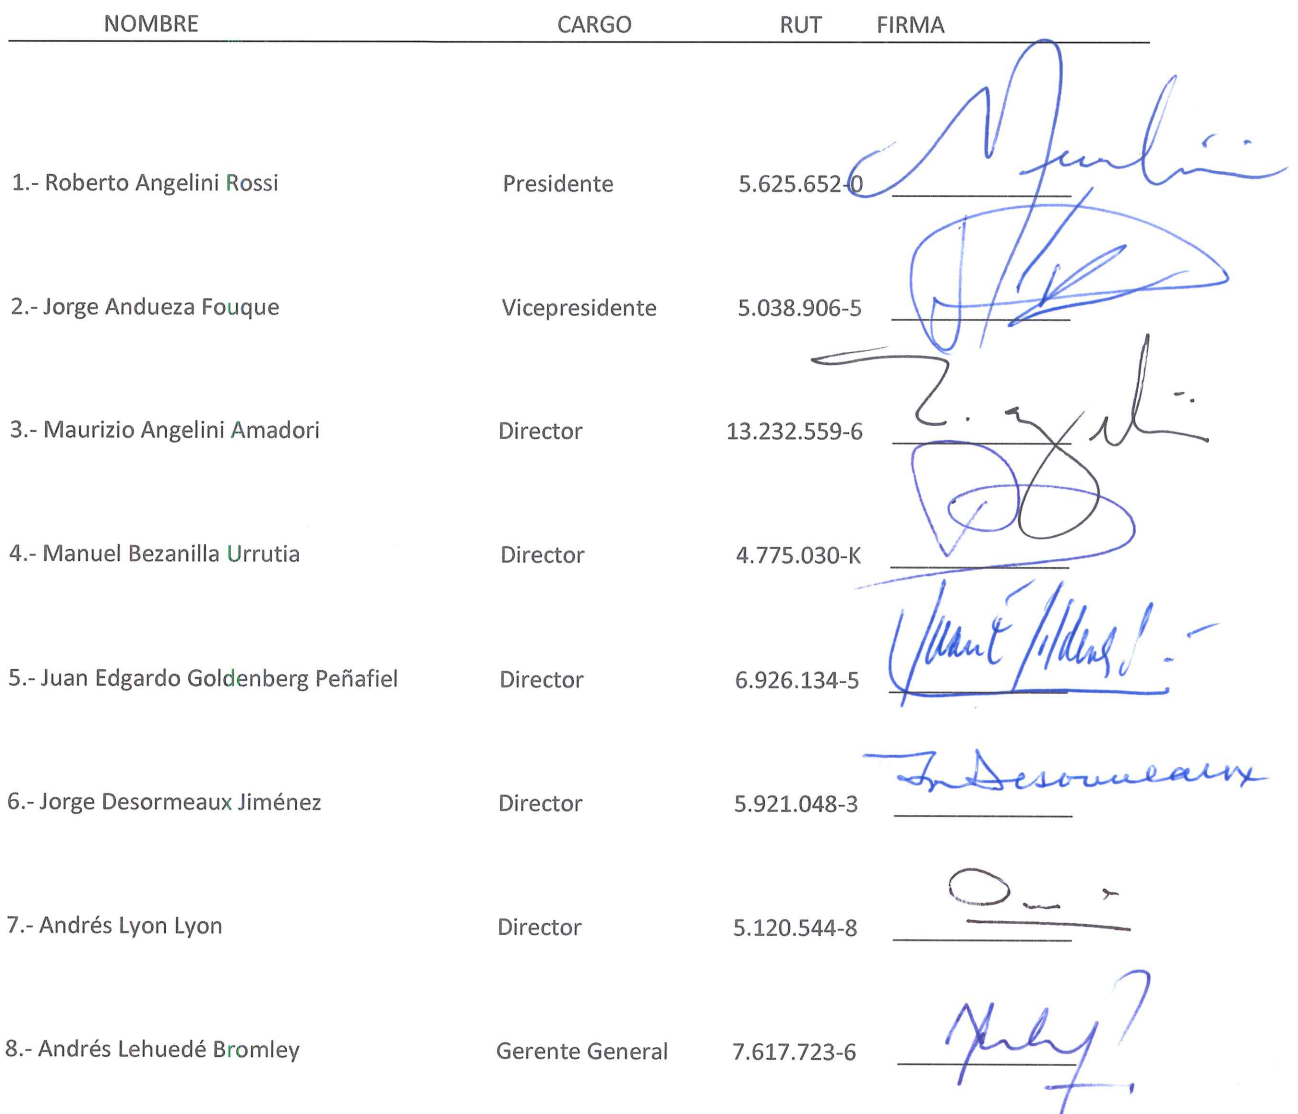 NOMBRE CARGO RUT FIRMA
1.- Roberto Angelini Rossi Presidente 5.625.652-0
2.- Jorge Andueza Fouque Vicepresidente 5.038.906-5
3.- Maurizio Angelini Amadori Director 13.232.559-6
4.- Manuel Bezanilla Urrutia Director 4.775.030-K
5.- Juan Edgardo Goldenberg Peñafiel Director 6.926.134-5
6.- Jorge Desormeaux Jiménez Director 5.921.048-3
7.- Andrés Lyon Lyon Director 5.120.544-8
8.- Andrés Lehuedé Bromley Gerente General 7.617.723-6